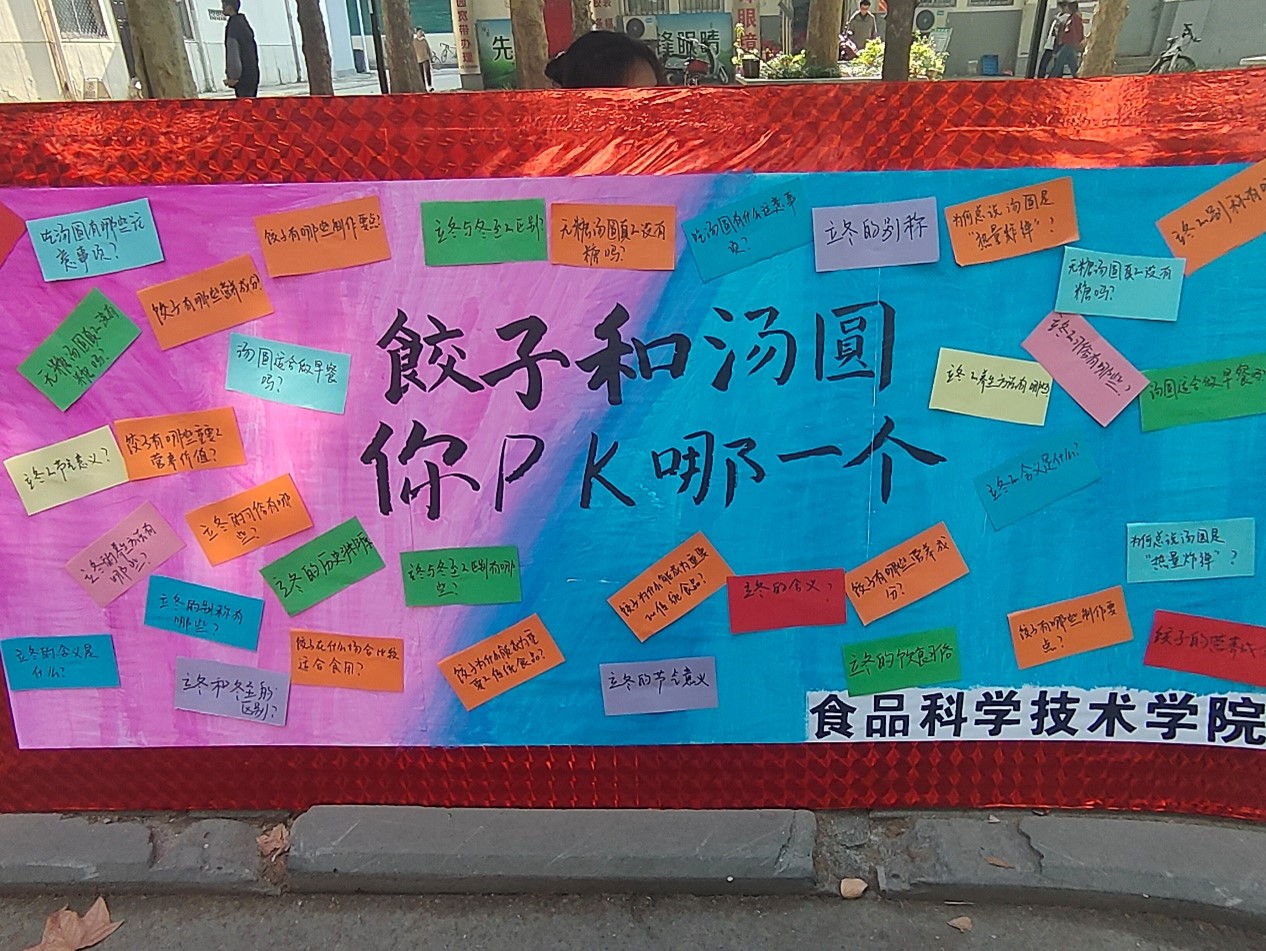 先
锋眼睛
眼
镜
吃汤圆有哪些注
意事项?
饺子有哪些制作要点?
立冬与冬至区别?
无糖汤圆真的没有
糖吗?
吃汤圆有什么注意事
项?
立冬的别称
为何总说汤圆是
"热量炸弹"?
立冬的别称有
饺子有哪些营养成分
无糖汤圆真的没有
糖吗?
无糖汤圆真的没有
糖吗?
汤圆适合做早餐
吗?
餃子和汤圆
你PK哪一个
立冬养生方法有哪些
立冬习俗有哪些?
汤圆适合做早餐吗
立冬节气意义?
饺子有哪些重要
营养价值?
立冬的习俗有哪
些?
立冬含义是什么?
立冬的养生方法有
哪些?
立冬的历史
立冬与冬至区别有哪
些?
为何总说汤圆是
"热量炸弹"?
立冬的别称有
哪些?
饺子为什么能成为重要
传统食品?
立冬的含义?
饺子有哪些营养成
分?
饺子有哪些制作要
点?
立冬的含义是
什么?
饺子在什么场合比较
适合食用?
饺子为什么能成为重
要传统食品?
立冬的饮食习俗
饺子的营养成
立冬和冬至的
区别?
立冬的节气意义
食品科学技术学院